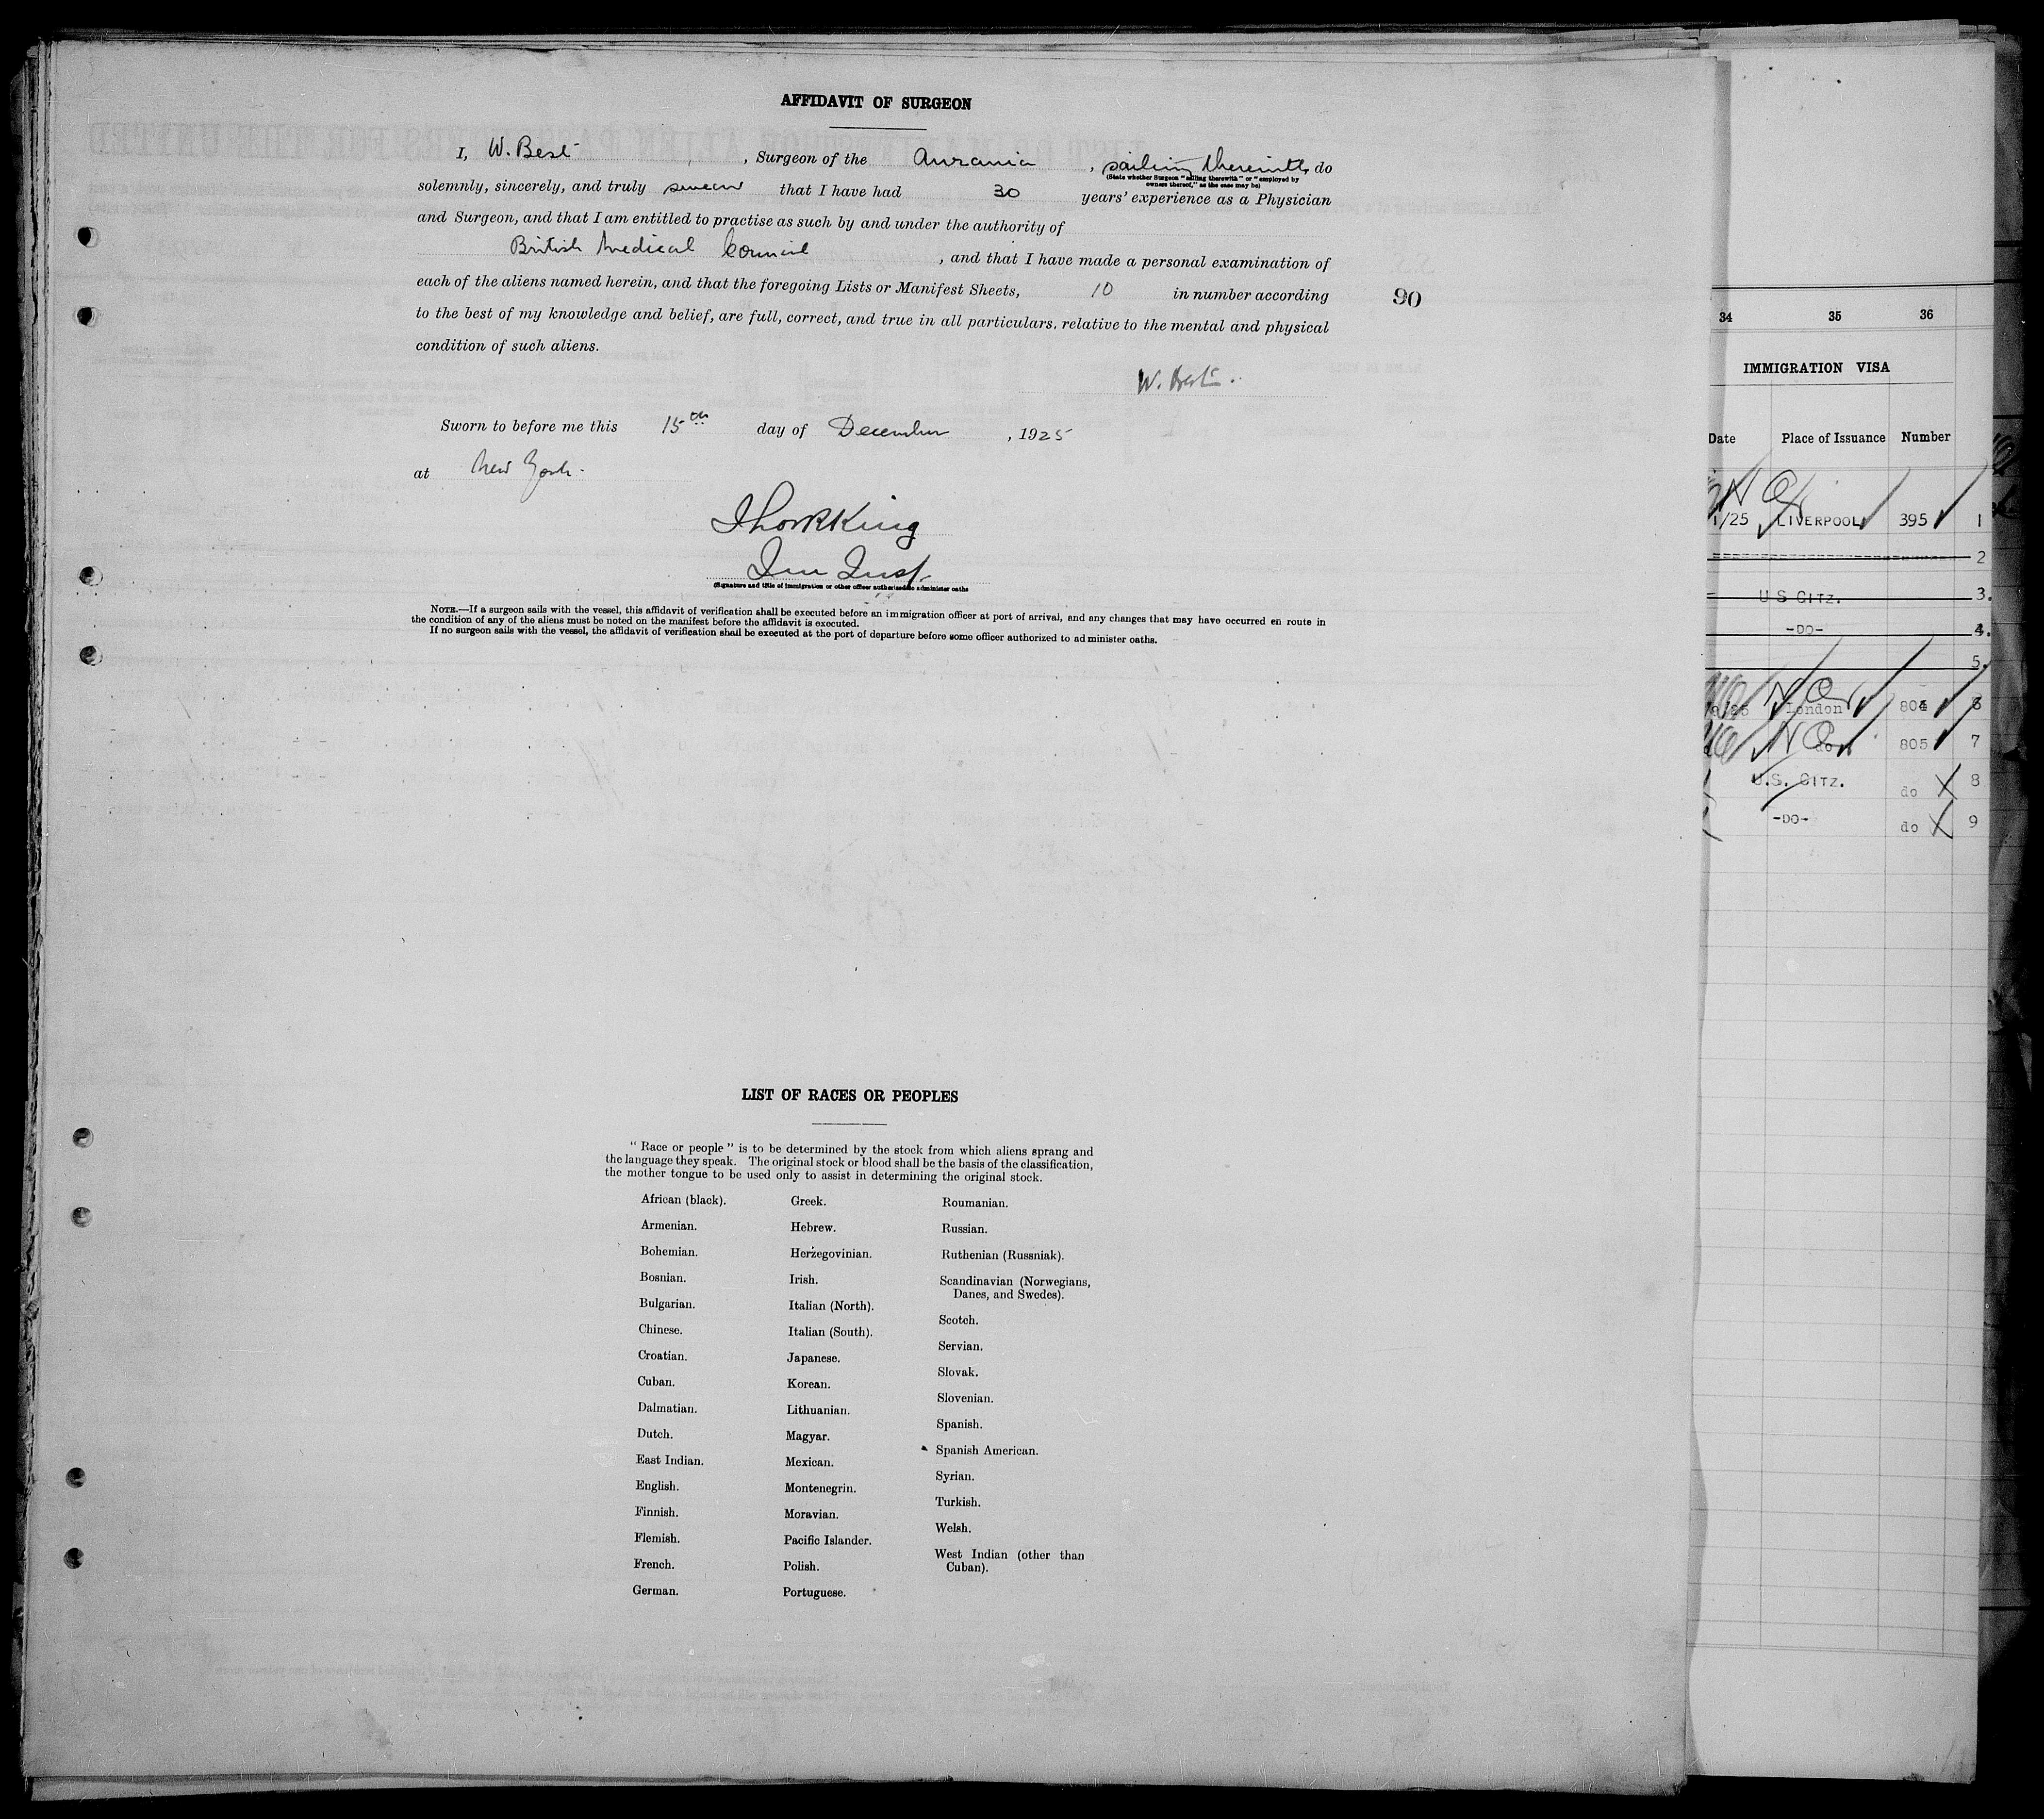 AFFIDAVIT OF SURGEON
I, W. Best , Surgeon of the Aurania , sailing therewith, do
(State whether Surgeon "sailing therewith" or "employed by
owners thereof," as the case may be)
solemnly, sincerely, and truly swear that I have had 30 years' experience as a Physician
and Surgeon, and that I am entitled to practise as such by and under the authority of
British Medical Council , and that I have made a personal examination of
each of the aliens named herein, and that the foregoing Lists or Manifest Sheets, 10 in number according
90
to the best of my knowledge and belief, are full, correct, and true in all particulars, relative to the mental and physical
condition of such aliens.
W. Best.
Sworn to before me this 15th day of December , 1925
at New York.
King
(Signature and title of immigration or other officer authorized to administer oaths
NOTE.—If a surgeon sails with the vessel, this affidavit of verification shall be executed before an immigration officer at port of arrival, and any changes that may have occurred en route in
the condition of any of the aliens must be noted on the manifest before the affidavit is executed.
If no surgeon sails with the vessel, the affidavit of verification shall be executed at the port of departure before some officer authorized to administer oaths.
LIST OF RACES OR PEOPLES
" Race or people " is to be determined by the stock from which aliens sprang and
the language they speak. The original stock or blood shall be the basis of the classification,
the mother tongue to be used only to assist in determining the original stock.
African (black).
Armenian.
Bohemian.
Bosnian.
Bulgarian.
Chinese.
Croatian.
Cuban.
Dalmatian.
Dutch.
East Indian.
English.
Finnish.
Flemish.
French.
German.
Greek.
Hebrew.
Herzegovinian.
Irish.
Italian (North).
Italian (South).
Japanese.
Korean.
Lithuanian.
Magyar.
Mexican.
Montenegrin.
Moravian.
Pacific Islander.
Polish.
Portuguese.
Roumanian.
Russian.
Ruthenian (Russniak).
Scandinavian (Norwegians,
Danes, and Swedes).
Scotch.
Servian.
Slovak.
Slovenian.
Spanish.
Spanish American.
Syrian.
Turkish.
Welsh.
West Indian (other than
Cuban).
34 35 36
IMMIGRATION VISA
Date Place of Issuance Number
1/25 LIVERPOOL 395 1
2
U S CITZ. 3.
-DO- 4.
5.
London 804 6
do 805 7
U.S. CITZ. do 8
-DO- do 9